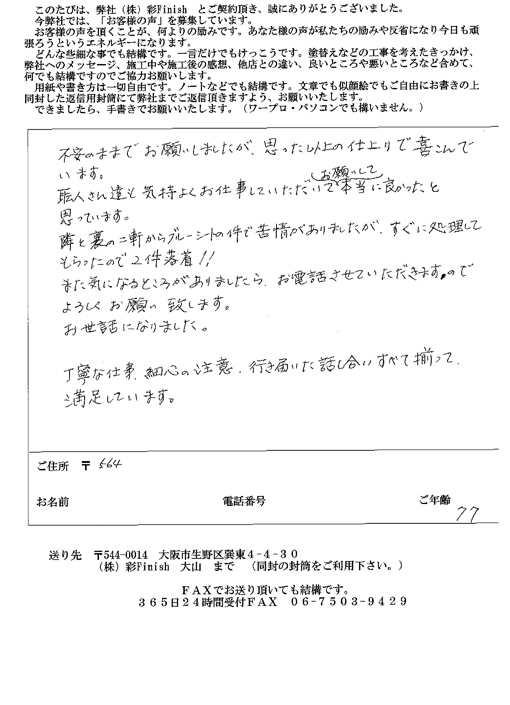 このたびは、弊社（株）彩Finish とご契約頂き、誠にありがとうございました。
今弊社では、「お客様の声」を募集しています。
お客様の声を頂くことが、何よりの励みです。あなた様の声が私たちの励みや反省になり今日も頑
張ろうというエネルギーになります。
どんな些細な事でも結構です。一言だけでもけっこうです。塗替えなどの工事を考えたきっかけ、
弊社へのメッセージ、施工中や施工後の感想、他店との違い、良いところや悪いところなど含めて、
何でも結構ですのでご協力お願いします。
用紙や書き方は一切自由です。ノートなどでも結構です。文章でも似顔絵でもご自由にお書きの上
同封した返信用封筒にて弊社までご返信頂きますよう、お願いいたします。
できましたら、手書きでお願いいたします。（ワープロ・パソコンでも構いません。）
不安のままでお願いしましたが、思った以上の仕上りで喜こんで
います。
職人さん達も気持よくお仕事していただいてお願いして本当に良かったと
思っています。
隣と裏の二軒からブルーシートの件で苦情がありましたが、すぐに処理して
もらったので2件落着!!
また気になるところがありましたら、お電話させていただきますので
よろしくお願い致します。
お世話になりました。
丁寧な仕事、細心の注意、行き届いた話し合いすべて揃って、
満足しています。
ご住所 〒 564
お名前 電話番号 ご年齢
77
送り先 〒544-0014 大阪市生野区巽東４-４-３０
（株）彩Finish 大山 まで （同封の封筒をご利用下さい。）
ＦＡＸでお送り頂いても結構です。
３６５日２４時間受付ＦＡＸ ０６-７５０３-９４２９